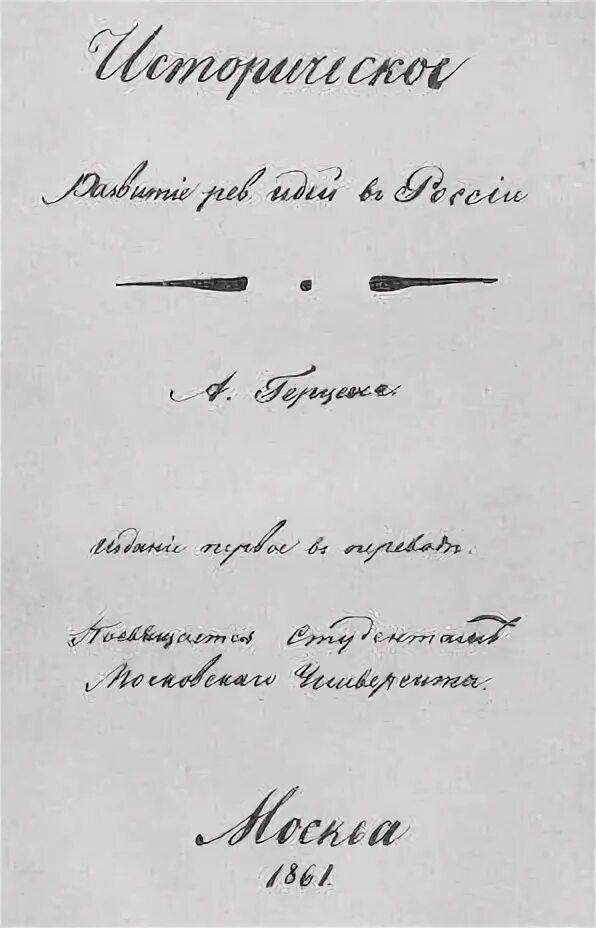 Историческое
Развитіе рев. идей въ Россіи
А. Герцена.
Изданіе первое въ переводѣ.
Посвящается Студентамъ
Московскаго Университета.
Москва
1861.